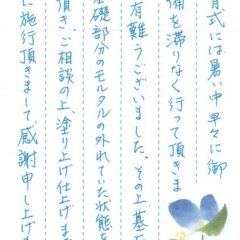 育式には暑い中早々に御
備を滞りなく行って頂きま
有難うございました。その上墓石
基礎部分のモルタルの外れていた状態を
頂き、ご相談の上、塗り上げ仕上げま
に施行頂きまして、感謝申し上げま